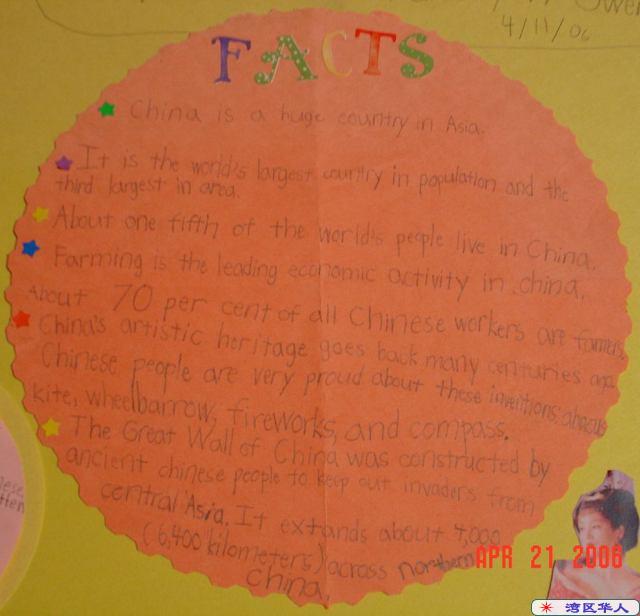 4/11/06
FACTS
China is a huge country in Asia.
It is the world's largest country in population and the
third largest in area.
About one fifth of the world's people live in China.
Farming is the leading economic activity in china.
About 70 per cent of all Chinese workers are farmers.
China's artistic heritage goes back many centuries ago.
Chinese people are very proud about these inventions:
kite, wheelbarrow, fireworks, and compass.
The Great Wall of China was constructed by
ancient chinese people to keep out invaders from
central Asia. It extands about 4,000
(6,400 kilometers) across northern
china.
APR 21 2006
湾区华人